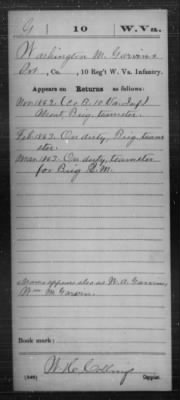 G 10 W.Va.
Washington M. Garvin
Pvt., Co. , 10 Reg't W. Va. Infantry.
Appears on Returns as follows:
Nov 1862. Co. A. 10 Va Inf
Absent Brig. teamster.
Feb 1863. On duty, Brig. team
ster.
Mar 1863. On duty, teamster
for Brig Q.M.
Name appears also as W. A. Garvin,
Wm M. Garvin.
Book mark:
W.H. Colling
(546) Copyist.